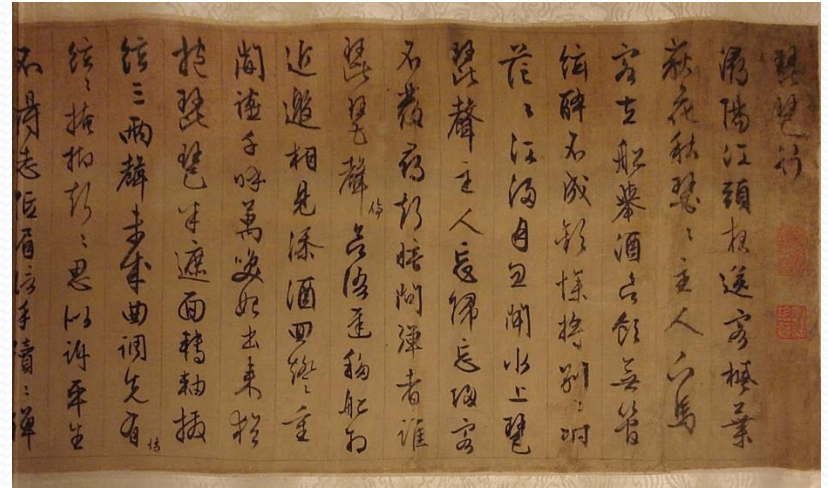 琵琶行
潯陽江頭夜送客楓葉
荻花秋瑟〻主人下馬
客在船舉酒欲飲無管
絃醉不成歡慘將別〻時
茫〻江浸月忽聞水上琵
琶聲主人忘歸忘客
不發尋聲暗問彈者誰
琵琶聲停欲語遲移船相
近邀相見添酒回燈重
開讌千呼萬喚始出來猶
抱琵琶半遮面轉軸撥
絃三兩聲未成曲調先有情
絃〻掩抑聲〻思似訴平生
不得志低眉信手續〻彈